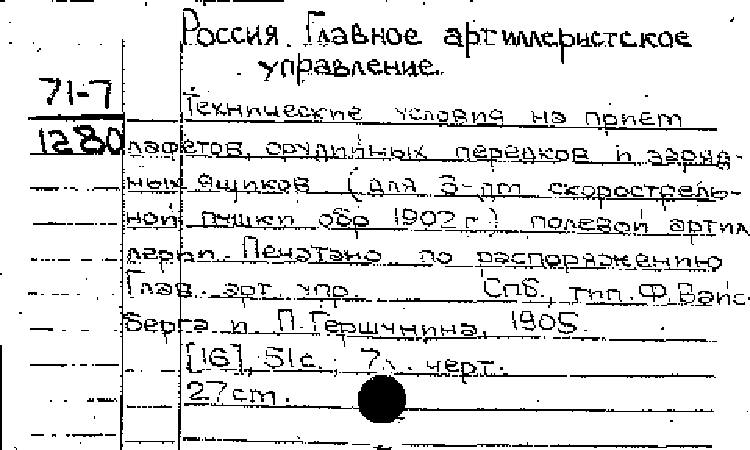 Россия. Главное артиллерийское
управление.
71-7
1280
Технические условия на прием
лафетов, орудийных передков и заряд-
ных ящиков (для 3-дм скорострель-
ной пушки обр 1902 г.) полевой артил
лерии. Печатано по распоряжению
Глав. арт. упр. Спб., тип. Ф. Вайс-
берга и П. Гершунина, 1905.
[16], 51 с.; 7 л. черт.
27 cm.